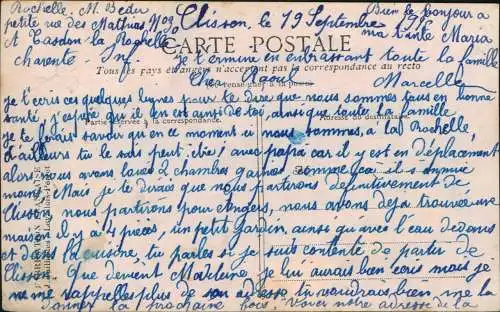 Rochelle. M. Bedu
petite rue des Mathurins N°09
A Tasdon la Rochelle
Charente Inf
Clisson, le 19 Septembre
Bien le bonjour à
ma tante Maria
CARTE POSTALE
je termine en embrassant toute la famille
Tous les pays étrangers n'acceptent pas la correspondance au recto
Marcelle
Cher Raoul
je t'écris ces quelques lignes pour te dire que nous sommes tous en bonne
santé, j'espère qu'il en est ainsi de toi, ainsi que toute la famille
Partie réservée à la correspondance.
Adresse du destinataire
je te ferais savoir qu'en ce moment ici nous sommes, à la Rochelle,
d'ailleurs tu le sais peut-être, avec papa car il y est en déplacement
alors nous avons loué 2 chambres garnies, comme ça il s'ennuie
moins. Mais je te dirais que nous partirons définitivement de
Clisson, nous partirons pour Angers, nous avons déjà trouvé une
maison il y a 4 pièces, un petit jardin, ainsi qu'avec l'eau dedans
et dans la cuisine, tu parles si je suis contente de partir de
Clisson. Que devient Madeleine je lui aurais bien écris mais je
ne me rappelles plus de son adresse tu voudrais bien me la
donner la prochaine fois. Voici notre adresse de la